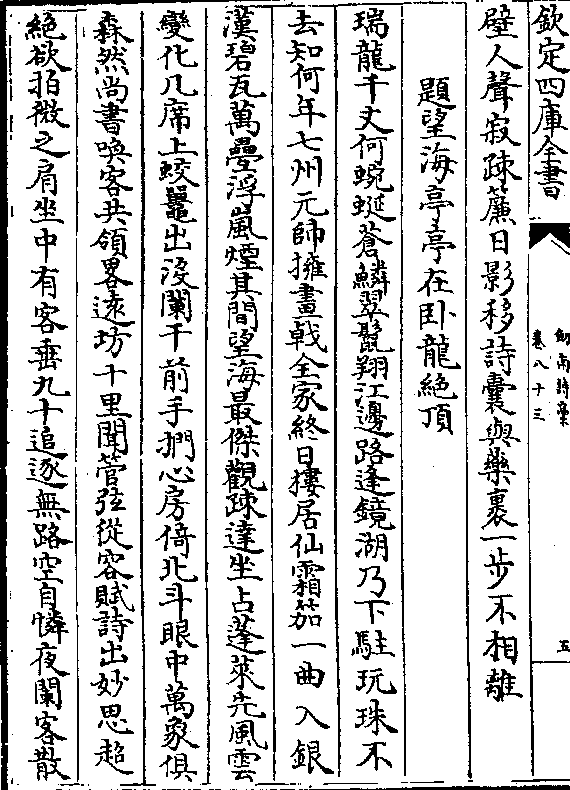 欽定四庫全書
劍南詩稾
卷八十三
五
壁人聲寂疎簾日影移詩囊與藥裹一步不相離
題望海亭亭在卧龍絶頂
瑞龍千丈何蜿蜒蒼鱗翠鬛翔江邊路逢鏡湖乃下駐玩珠不
去知何年七州元帥擁畫㦸全家終日樓居仙霜笳一曲入銀
漢碧瓦萬疊浮嵐煙其間望海最傑觀疎達坐占蓬萊先風雲
變化几席上蛟鼉出没闌干前手捫心房倚北斗眼中萬象俱
森然尚書喚客共領畧遠坊十里聞管弦從容賦詩出妙思超
絶欲拍微之肩坐中有客垂九十追逐無路空自憐夜闌客散